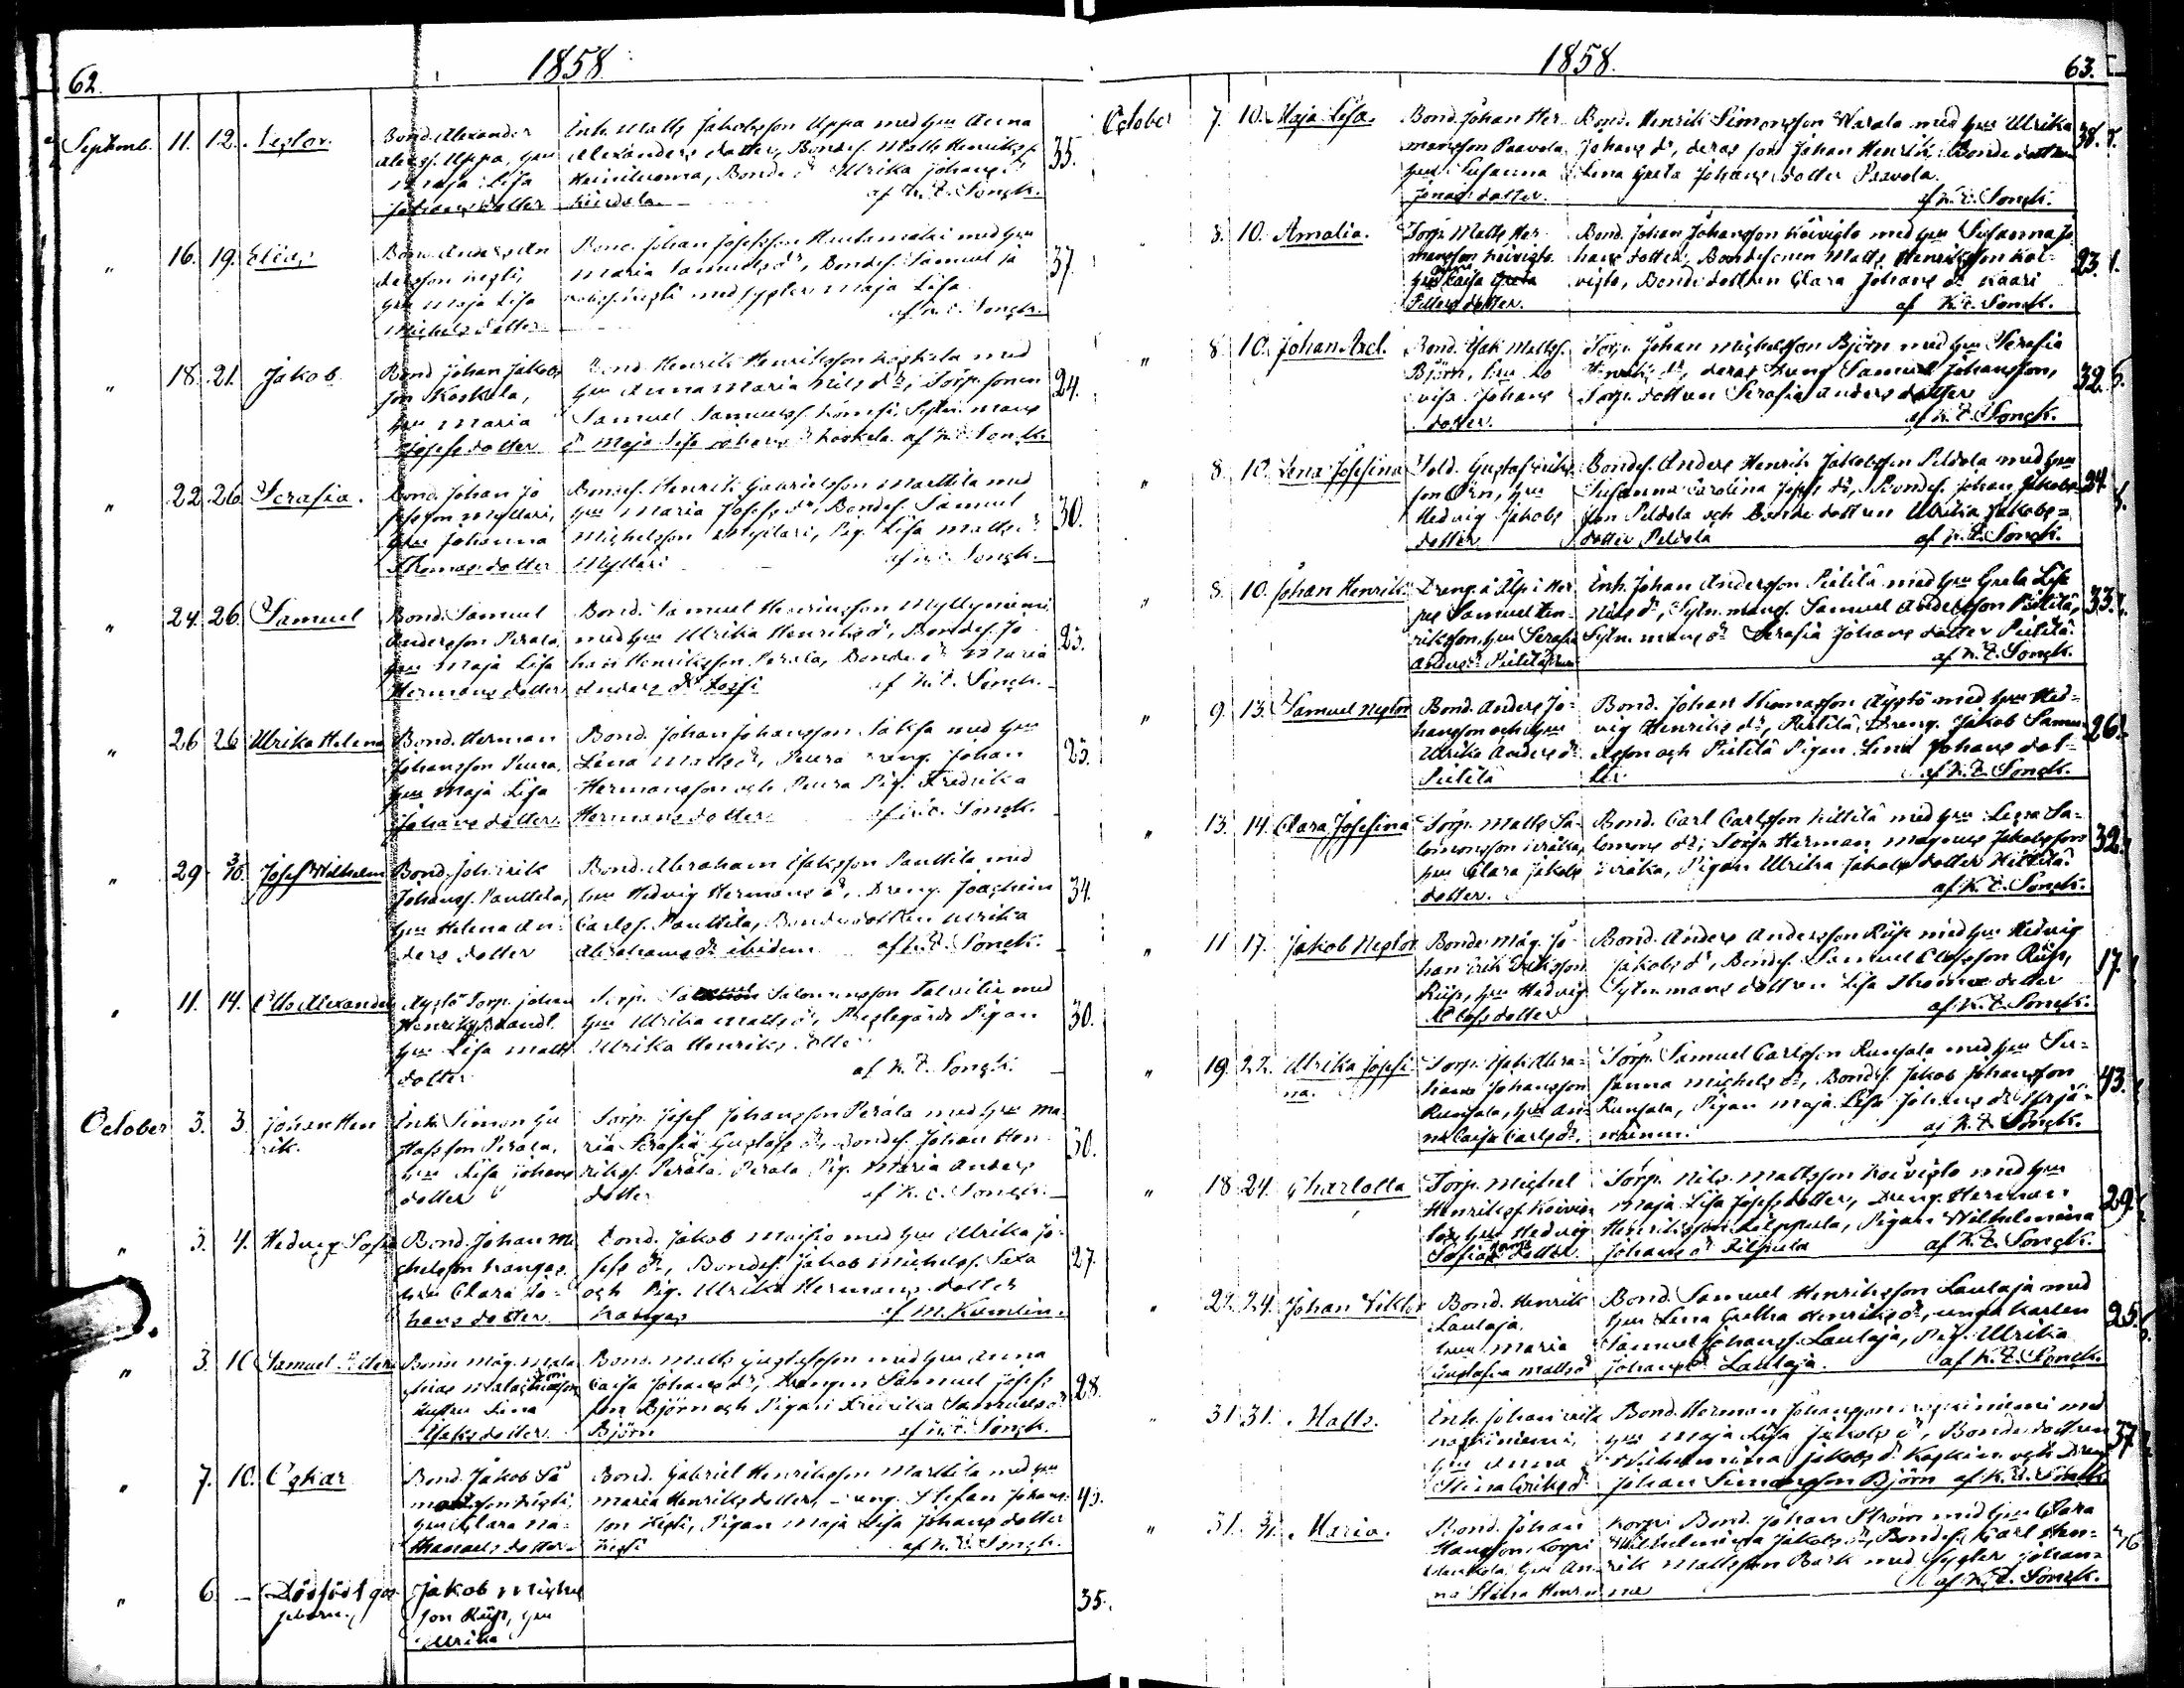 62.
1858.
Septemb. 11. 12. Nestor.
Bond. Alexander
Alexsf. Uppa, hu
Maja Lisa
Johans dotter
Inh. Matts Jakobsson Uppa med hu Anna
Alexanders dotter, Bondes. Matts Henriks s.
Bonde dr Ulrika Johans dr
af K. E. Sonck.
35.
" 16. 19. Elias
Bond. Anders An
dersson
hu Maja Lisa
Michels dotter
Bond. Johan Josefsson med hu
Maria Samuels dr, Bondes. Samuel Ja
med syster Maja Lisa
af K. E. Sonck.
37.
" 18. 21. Jakob
Bond. Johan Jakobs
son Koskela,
hu Maria
Josefs dotter
Bond. Henrik Henriksson Koskela med
hu Anna Maria Nils dr, Torp. sonen
Samuel Samuelss. Sytn. mans
dr Maja Lisa Koskela. af K. E. Sonck.
24.
" 22. 26. Serafia.
Bond. Johan Jo
sefsson Myllari,
hu Johanna
Thomas dotter
Bondes. Henrik Gabrielsson Marttila med
hu Maria Josefs dr, Bondes. Samuel
Michelsson Myllari, Pig. Lisa Matts dr
Myllari af K. E. Sonck.
30.
" 24. 26. Samuel
Bond. Samuel
Andersson Perala,
hu Maja Lisa
Hermans dotter
Bond. Samuel Henriksson Myllyniemi
med hu Ulrika Henriks dr, Bondes. Jo
han Henriksson Perala, Bonde dr Maria
Anders dr af K. E. Sonck.
25.
" 26 26 Ulrika Helena
Bond. Herman
Johansson Peura,
hu Maja Lisa
Johans dotter
Bond. Johan Johansson med hu
Lena Matts dr, Peura Dreng. Johan
Hermansson och Peura Pig. Fredrika
Hermans dotter. af K. E. Sonck.
25.
" 29. 30. Josef Wilhelm
Bond. Joh. Erik
Johanss. Panttila,
hu Helena An-
ders dotter
Bond. Abraham Isaksson Panttila med
hu Hedvig Hermans dr, Dreng. Joachim
Carlss. Panttila, Bondedottren Ulrika
Abrahams dr ibidem af K. E. Sonck.
34.
" 11. 14. Otto Alexander
Äystö Torp. Johan
Henrikss. Brandt.
hu Lisa Matts
dotter
Torp. Samuel Salomonsson Talvitie med
hu Ulrika Matts dr, Prestgårds Pigan
Ulrika Henriks dotter
af K. E. Sonck.
30.
October 3. 3. Johan Hen
rik.
Inh. Simon Gu
stafsson Perala,
hu Lisa Johans
dotter
Torp. Josef Johansson Perala med hu Ma-
ria Serafia Gustafs dr, Bondes. Johan Hen
rikss. Perala. Perala Pig. Maria Anders
dotter af K. E. Sonck.
30.
" 3. 4. Hedvig Sofia
Bond. Johan Mi
chelsson Kangas,
hu Clara Jo-
hans dotter
Bond. Jakob Maisio med hu Ulrika Jo-
sefs dr, Bondes. Jakob Michelss. Saxa
och Pig. Ulrika Hermans dotter
Kangas af M. Kumlin.
27.
" 3. 10. Samuel
Bond. Måg. Mala
chias Malachiasson
hustru Lina
Isaks dotter
Bond. Matts Gustafsson med hu Anna
Caisa Johans dr, Drengen Samuel Josefs
son Björn och Pigan Fredrika Samuels dr
Björn af K. E. Sonck.
28.
" 7. 10. Oskar
Bond. Jakob Sa
hu Clara Na-
thanaels dotter
Bond. Gabriel Henriksson Marttila med hu
Maria Henriks dotter, Dreng. Stefan Johans
son Pigan Maja Lisa Johans dotter
af K. E. Sonck.
43.
" 6. – Dödfödt gos
sebarn.
Jakob Michel
son Riip, hu
Ulrika
35.
1858.
63.
October 7. 10. Maja Lisa.
Bond. Johan Her
mansson Paavola
hu Susanna
Jonas dotter.
Bond. Henrik Simonsson Warala med hu Ulrika
Johans dr, deras son Johan Henrik, Bonde dottren
Lena Greta Johans dotter Paavola.
af K. E. Sonck.
38.
" 8. 10. Amalia.
Torp. Matts Her
mansson Koivisto
hu Caisa Greta
dotter.
Bond. Johan Johansson Koivisto med hu Susanna Jo
hans dotter, Bondesonen Matts Henriksson Koi-
visto, Bonde dottren Clara Johans dr Kaari
af K. E. Sonck.
23.
" 8. 10. Johan Axel.
Bond. Isak Mattss.
Björn, hu Lo
visa Johans
dotter.
Torp. Johan Michelsson Björn med hu Serafia
Henriks dr, deras dreng Samuel Johansson,
Torp. dottren Serafia Anders dotter
af K. E. Sonck.
32.
" 8. 10. Lena Josefina
Sold. Gustaf Eriks
son Örn, hu
Hedvig Jakobs
dotter
Bondes. Anders Henrik Jakobsson Peldola med hu
Susanna Carolina Josefs dr, Bondes. Johan Jakobs
son Peldola och Bonde dottren Ulrika Jakobs-
dotter Peldola af K. E. Sonck.
24
" 8. 10. Johan Henrik
Samuel Hen-
riksson, hu Serafia
Anders dr Pietilä
Inh. Johan Andersson Pietilä med hu Greta Lisa
Nils dr, Sytn. mans s. Samuel Andersson Pietilä,
Sytn. mans dr Serafia Johans dotter Pietilä.
af K. E. Sonck.
33.
" 9. 13. Samuel Nestor
Bond. Anders Jo-
hansson och hu
Ulrika Anders dr
Pietilä
Bond. Johan Thomasson Äystö med hu Hed-
vig Henriks dr, Pietilä Dreng. Jakob Samu-
elsson och Pietilä Pigan Lena Johans dot-
ter af K. E. Sonck.
26.
" 13. 14. Clara Josefina
Torp. Matts Sa-
lomonsson
hu Clara Jakobs
dotter.
Bond. Carl Carlsson Hittilä med hu Lena Sa-
lomons dr, Torp. Herman Magnus Jakobsson
Pigan Ulrika Jakobs dotter Hittilä.
af K. E. Sonck.
32.
" 11 17. Jakob Nestor
Bonde Måg. Jo
han Erik Eriksson
Riip, hu Hedvig
dotter
Bond. Anders Andersson Riip med hu Hedvig
Jakobs dr, Bondes. Samuel Riip,
Sytn. mans dottren Lisa Thomas dotter
af K. E. Sonck.
17.
" 19. 22. Ulrika Josefi-
na.
Torp. Isak Abra-
ham Johansson
Runsala, hu An-
na Caisa Carls dr.
Torp. Samuel Carlsson Runsala med hu Su-
sanna Michels dr, Bondes. Jakob Johansson
Runsala, Pigan Maja Lisa Johans dr
af K. E. Sonck.
43.
" 18. 24. Charlotta
Torp. Michel
Henrikss. Koivis
to, hu Hedvig
Sofia dotter
Torp. Nils Mattsson Koivisto med hu
Maja Lisa Josefs dotter, Dreng. Herman
Henriksson Pigan Wilhelmina
Johans dr af K. E. Sonck.
29.
" 22. 24. Johan Viktor
Bond. Henrik
Laulaja.
hu Maria
Gustafva Matts dr
Bond. Samuel Henriksson Laulaja med
hu Lena Gretha Henriks dr, unga karlen
Samuel Johanss. Laulaja, Pig. Ulrika
Johans dr Laulaja. af K. E. Sonck.
25.
" 31. 31. Matts.
Inh. Johan
hu Anna
Stina Eriks dr
Bond. Herman Johansson med
hu Maja Lisa Jakobs dr, Bonde dottren
Wilhelmina Jakobs dr och Dreng
Johan Simonsson Björn af K. E. Sonck
37.
" 31. 31. Maria.
Bond. Johan
Hansson Korpi
hu An-
na Stina
Korpi Bond. Johan Ström med hu Clara
Wilhelmina Jakobs dr, Bondes. Karl Hen-
rik Mattsson Bark med Syster Johan-
na af K. E. Sonck.